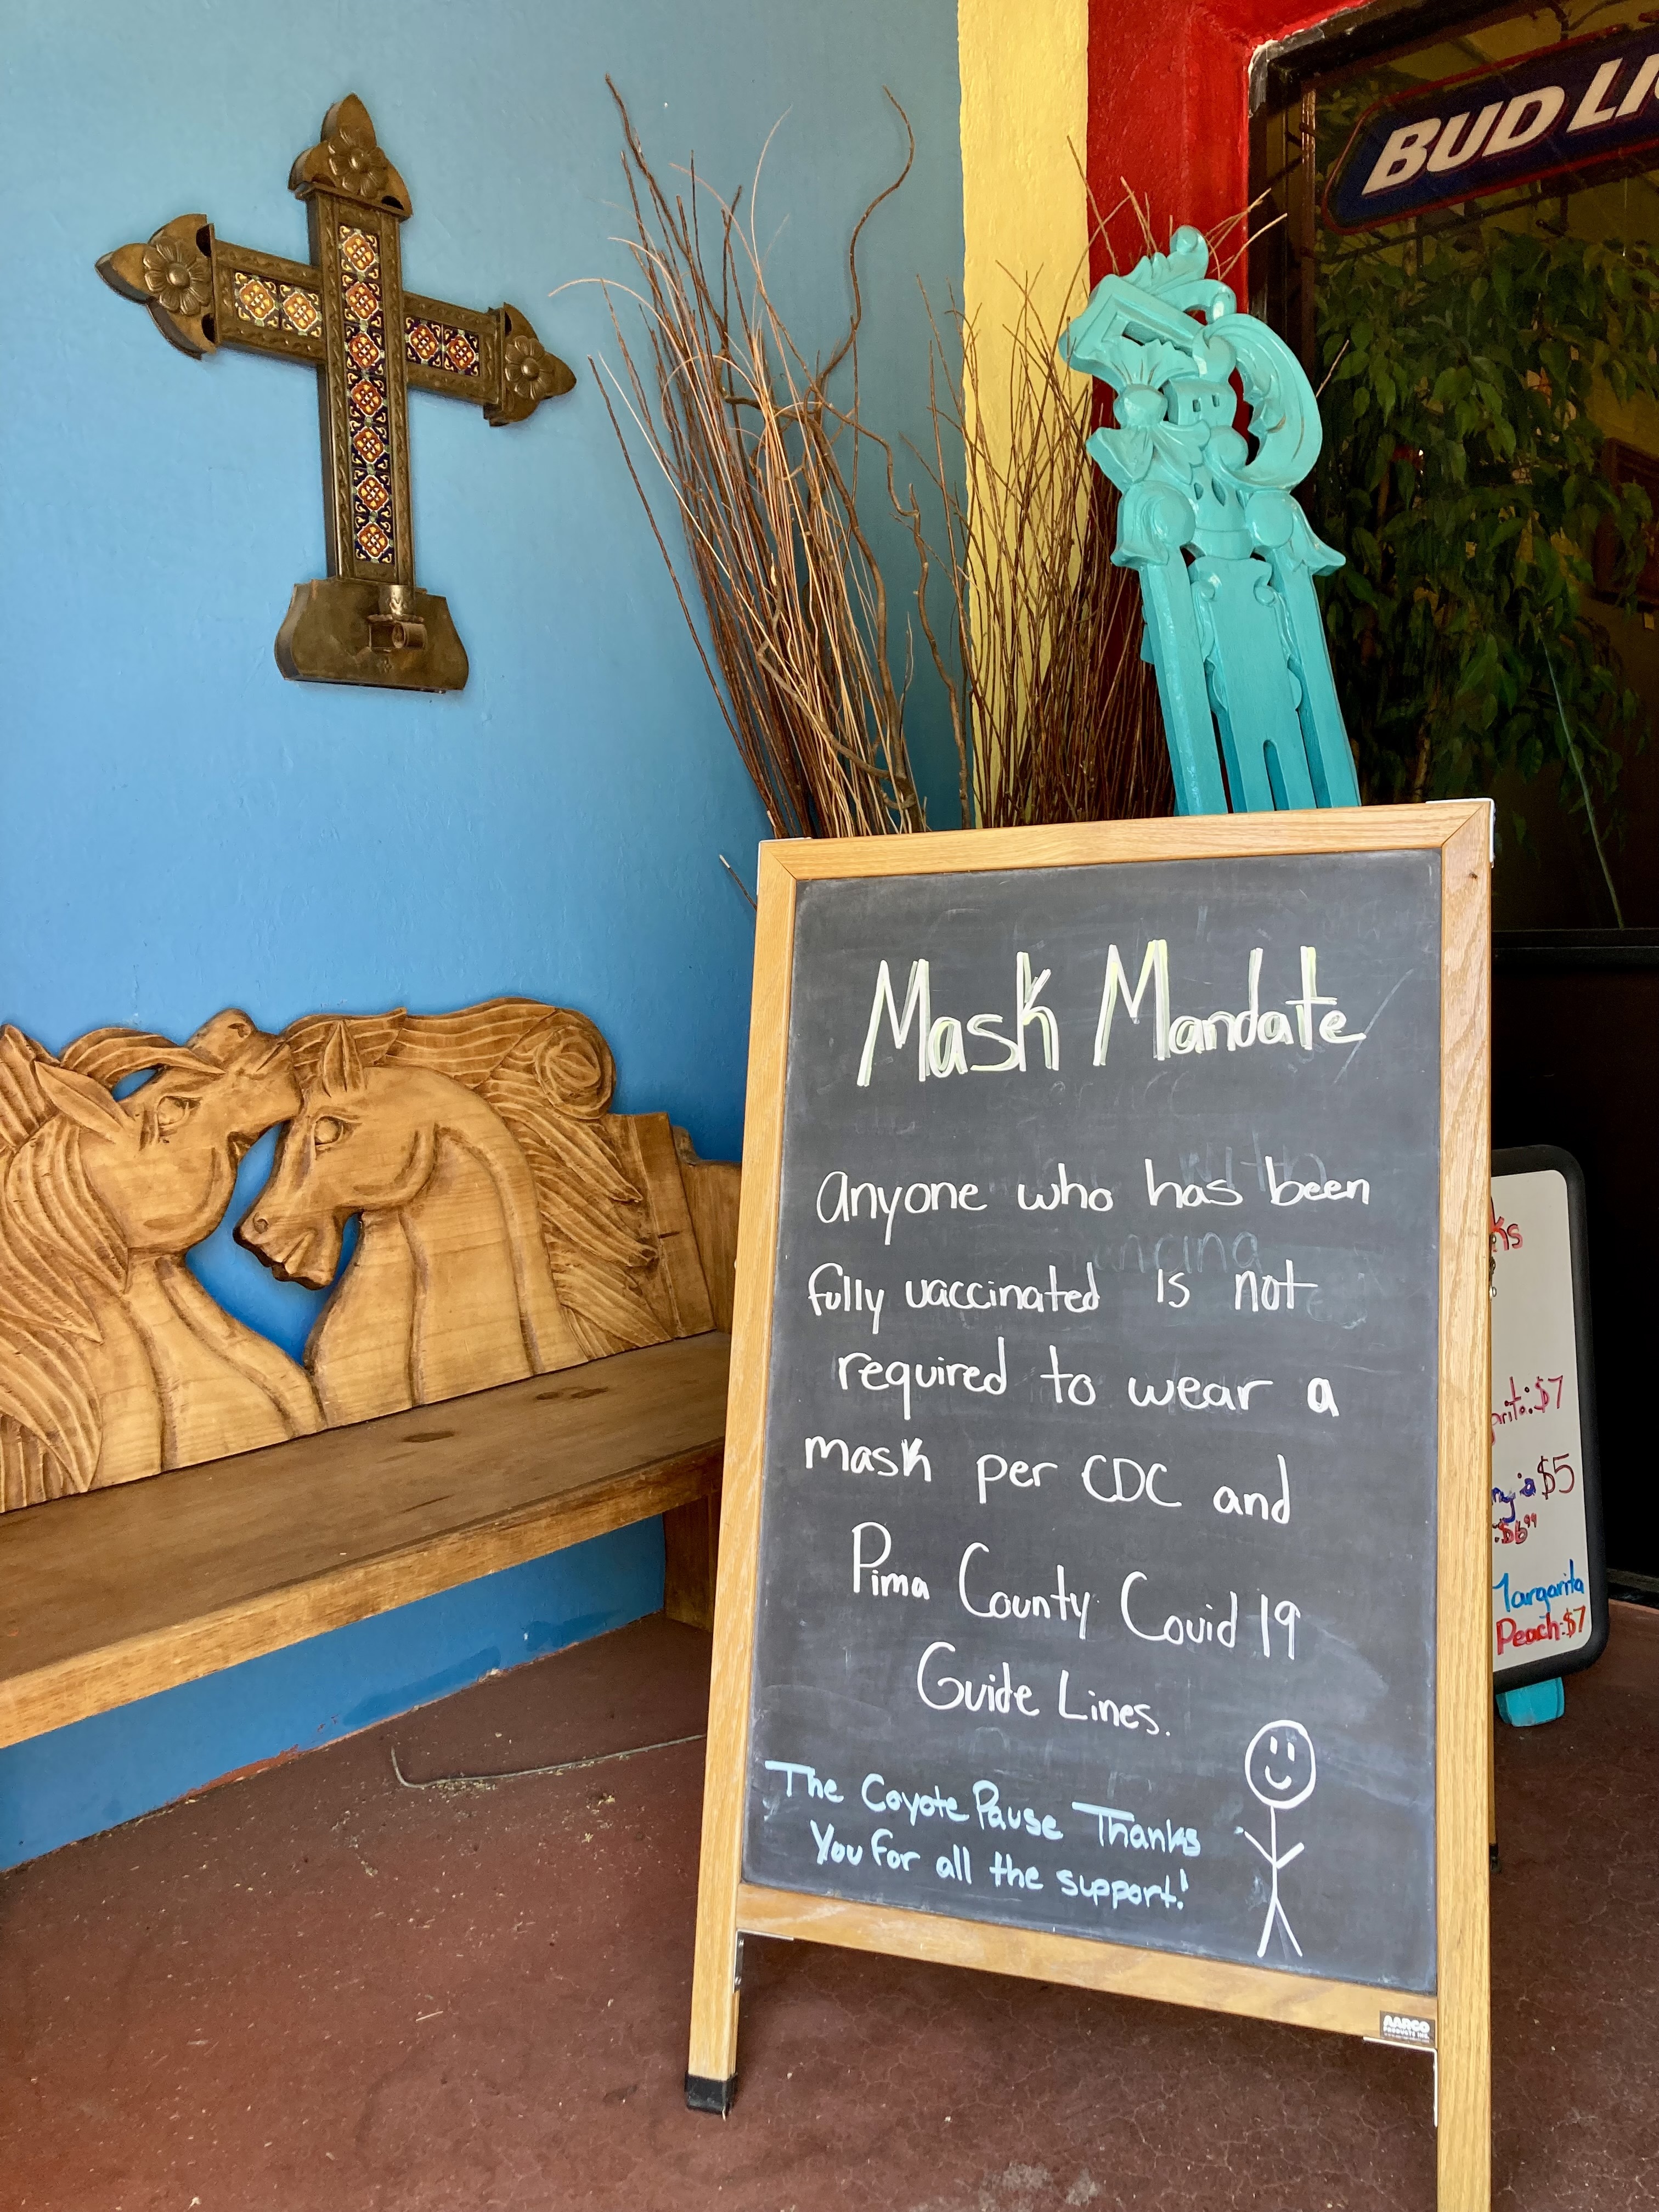 BUD LI
Mask Mandate
anyone who has been
fully vaccinated is not
required to wear a
mask per CDC and
Pima County Covid 19
Guide Lines.
The Coyote Pause Thanks
You for all the support!
AARCO
PRODUCTS INC.
ks
rita:$7
$5
$6⁹⁹
Margarita
Peach:$7